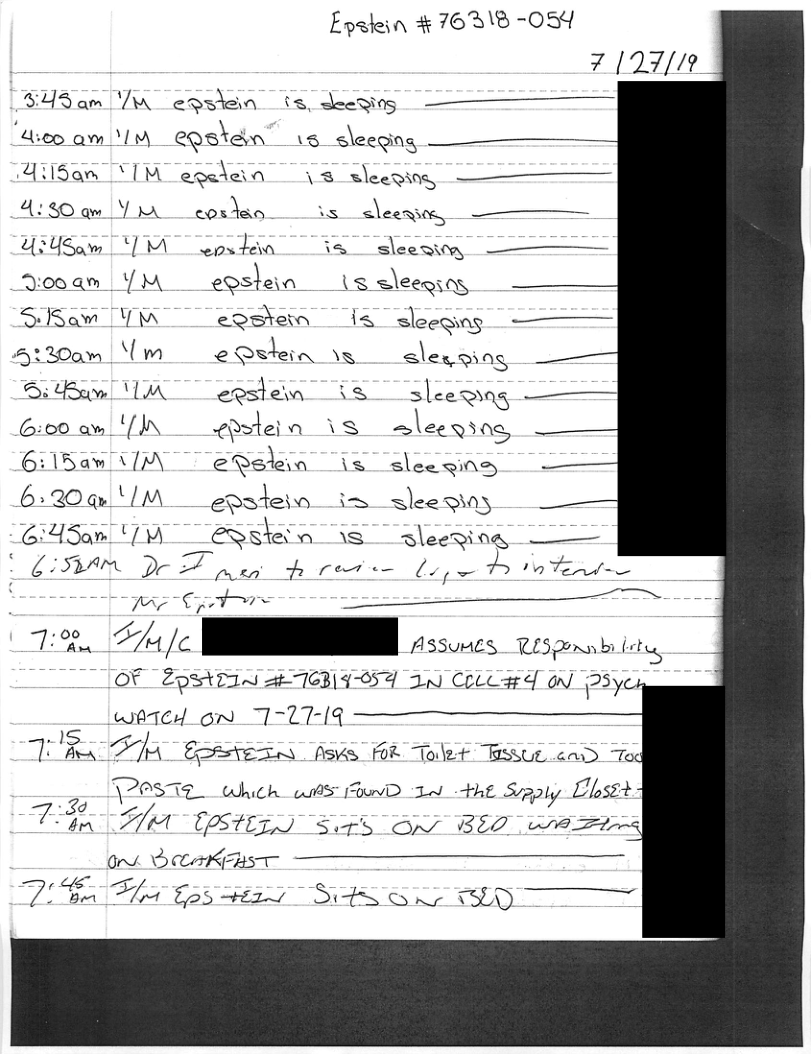 Epstein # 76318-054
7/27/19
3:45am I/M epstein is sleeping
4:00 am I/M epstein is sleeping
4:15am I/M epstein is sleeping
4:30 am I/M epstein is sleeping
4:45am I/M epstein is sleeping
5:00 am I/M epstein is sleeping
5:15am I/M epstein is sleeping
5:30am I/m epstein is sleeping
5:45am I/M epstein is sleeping
6:00 am I/M epstein is sleeping
6:15am I/M epstein is sleeping
6:30 am I/M epstein is sleeping
6:45am I/M epstein is sleeping
AM Dr to review to
Mr Epstein
7:00 AM I/M/C ASSUMES RESponsibility
OF EpstEIN #76318-054 IN CELL #4 ON psych
WATCH ON 7-27-19
7:15 AM I/M EPSTEIN ASKS FOR Toilet TISSUE and Too
PASTE which was FOUND IN the Supply Closet
7:30 AM I/M EPSTEIN Sits ON BED WAITing
ON BREAKFAST
7:45 AM I/M EPStEIN Sits ON BED